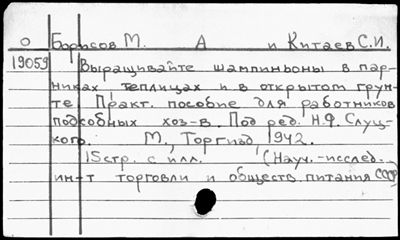 О Борисов М. А и Китаев С.И.
19059 Выращивайте шампиньоны в пар-
никах, теплицах и в открытом грун-
те. Практ. пособие для работников
подсобных хоз-в. Под ред. Н.Ф. Слуц-
кого. М., Торгизд, 1942.
15 стр. с илл. (Науч.-исслед.
ин-т торговли и обществ. питания СССР)